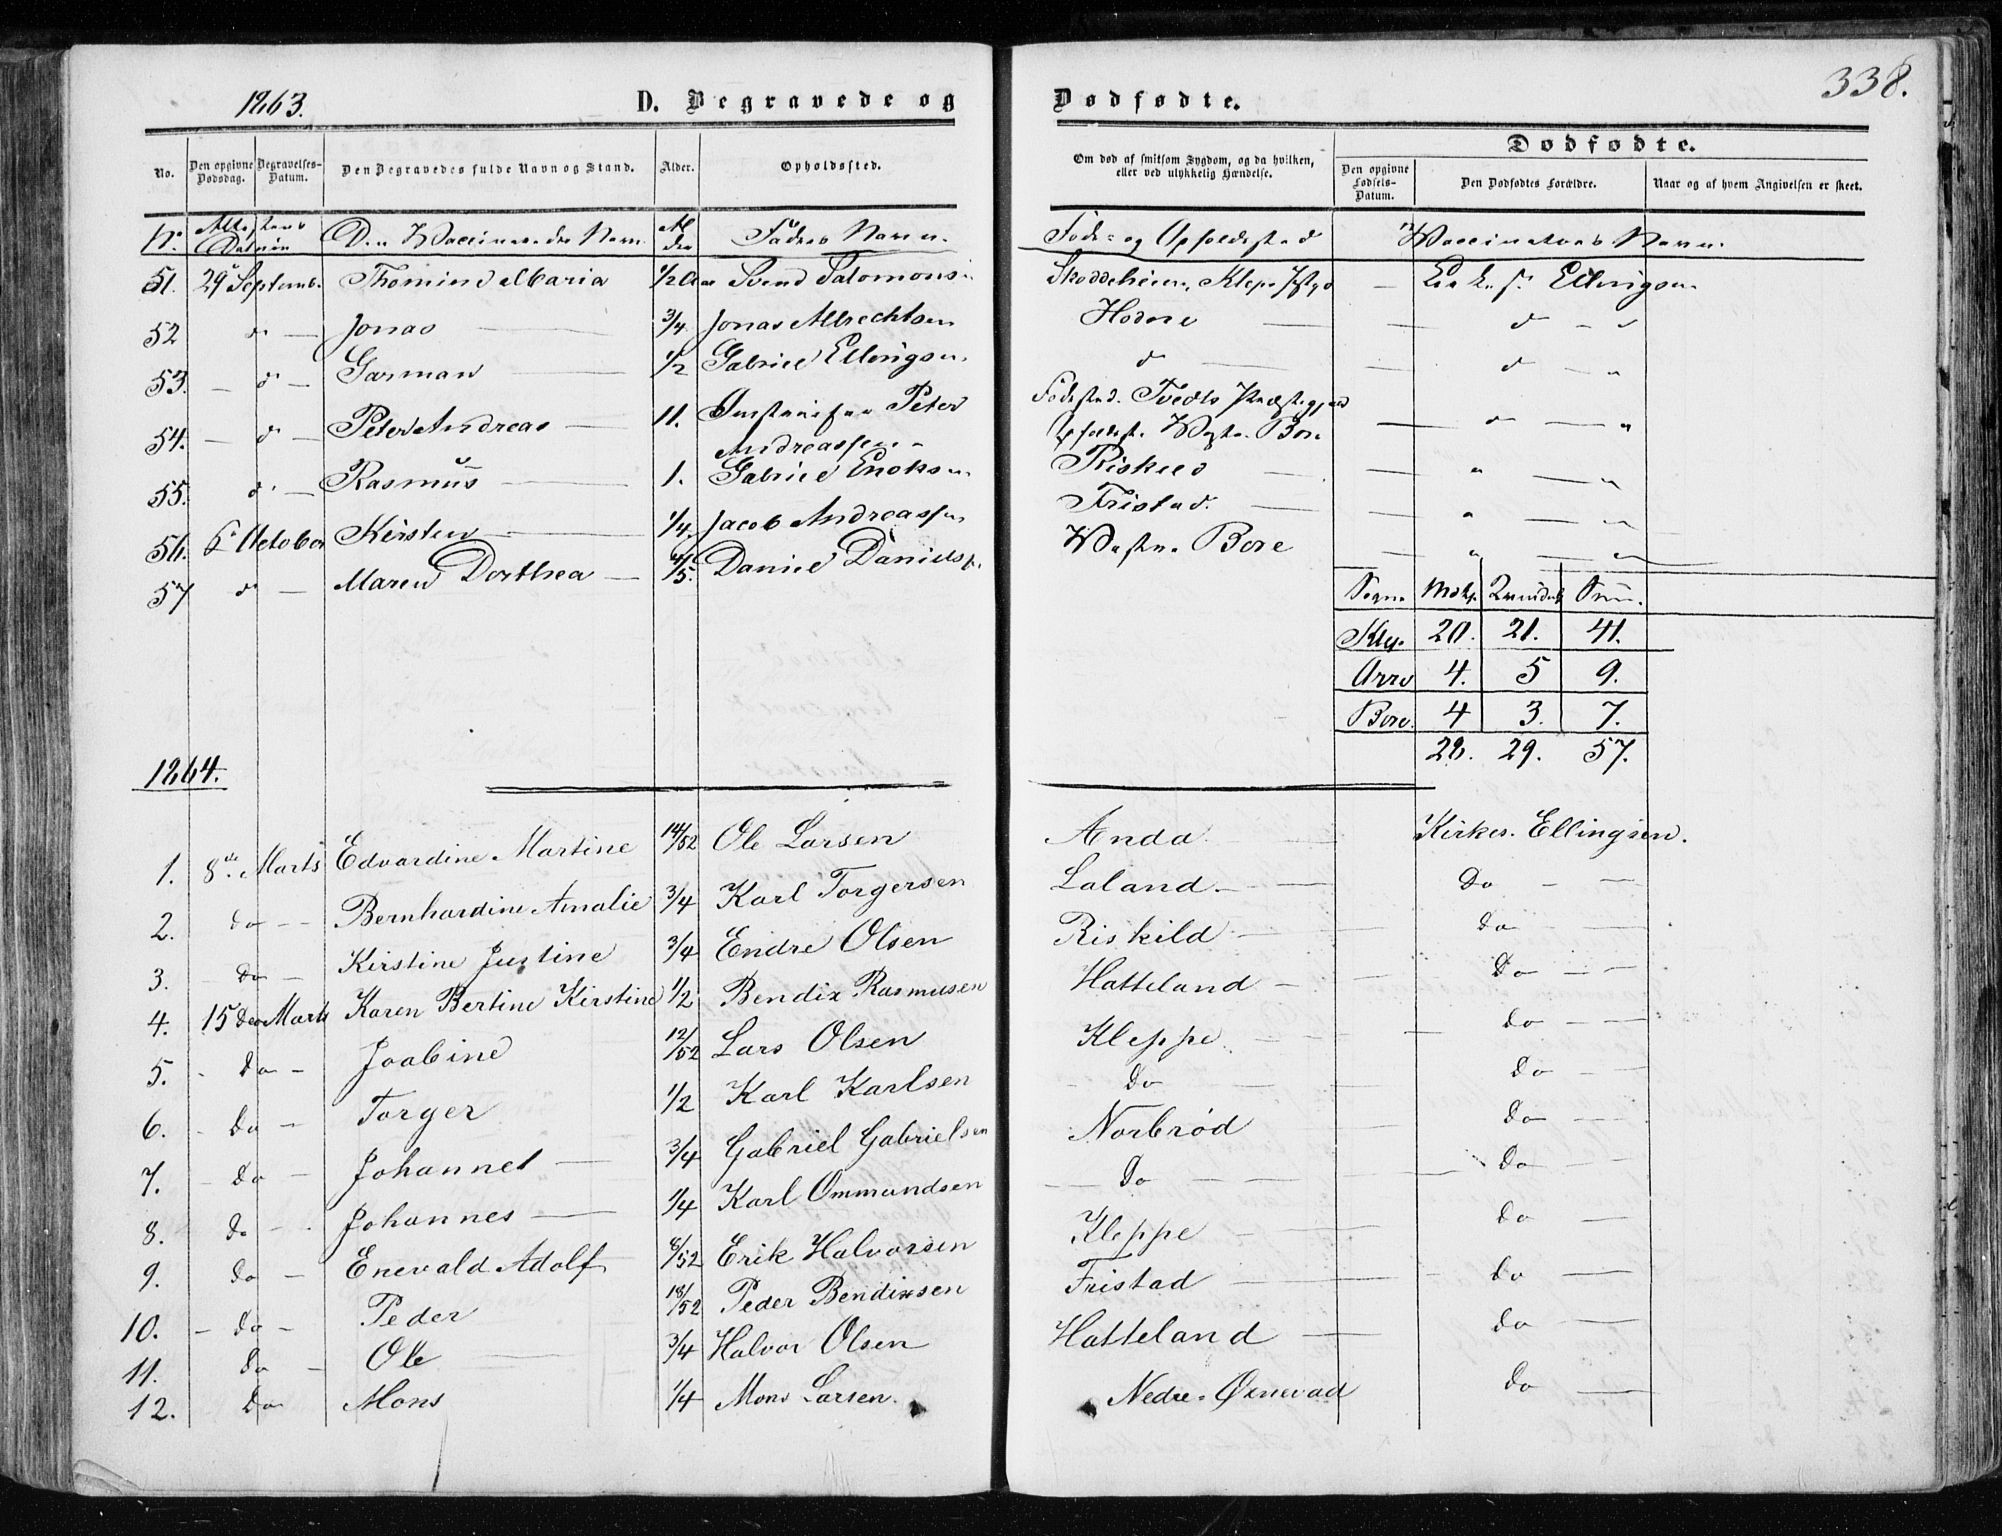 1863.
D. Begravede og
Dødfødte.
338.
No.
Den opgivne Dødsdag.
Begravelses-Datum.
Den Begravedes fulde Navn og Stand.
Alder.
Opholdssted.
Om død af smitsom Sygdom, og da hvilken, eller ved ulykkelig Hændelse.
Dødfødte.
Den opgivne Fødsels-Datum.
Den Dødfødtes Forældre.
Naar og af hvem Angivelsen er skeet.
No. Attestens Datum Den Vaccineredes Navn Alder Faders Navn. Føde- og Opholdssted Vaccinateurs Navn.
51. 29 Septemb. Thomine Maria 1/2 Aar Svend Salomons. Klep Ellingsen
52 do Jonas 3/4 Jonas Albrechtsen Hodne do
53. do Garman 1/2 Gabriel Ellingsen. do do
54. do Peter Andreas 11. Peter Andreassen Fødested. Tvedts Præstegjeld Opholdst. Vestre Bore do
55. do Rasmus 1. Gabriel Enoksen Riskild " "
56. 6 October Kirsten 1/4. Jacob Andreassen Fristad. " "
57 do Maren Dorthea 4/5. Daniel Daniels. Vestre Bore " "
Sogne Mdkj. Qvindek. Sum.
Klep. 20. 21. 41.
Orre 4. 5 9.
Bore. 4 3. 7.
28. 29. 57.
1864.
1. 8de Marts Edvardine Martine 14/52 Ole Larsen Anda Kirkes. Ellingsen.
2. do Bernhardine Amalie 3/4 Karl Torgersen Laland. Do
3. Do Kirstine Justine 3/4 Endre Olsen Riskild Do
4. 15de Marts Karen Bertine Kirstine 1/2 Bendix Rasmusen Hatteland Do
5. Do Joabine 12/52 Lars Olsen Kleppe. Do
6. Do Torger 1/2 Karl Karlsen Do Do
7. Do Johannes 3/4 Gabriel Gabrielsen Norbrød Do
8. Do Johannes 1/4 Karl Ommundsen Do Do
9. Do Enevald Adolf 8/52 Erik Halvorsen Kleppe Do
10. Do Peder 18/52 Peder Bendixsen Fristad Do
11. Do Ole 3/4 Halvor Olsen Hatteland Do
12. Do Mons 1/4 Mons Larsen. Nedre-Øxnevad Do